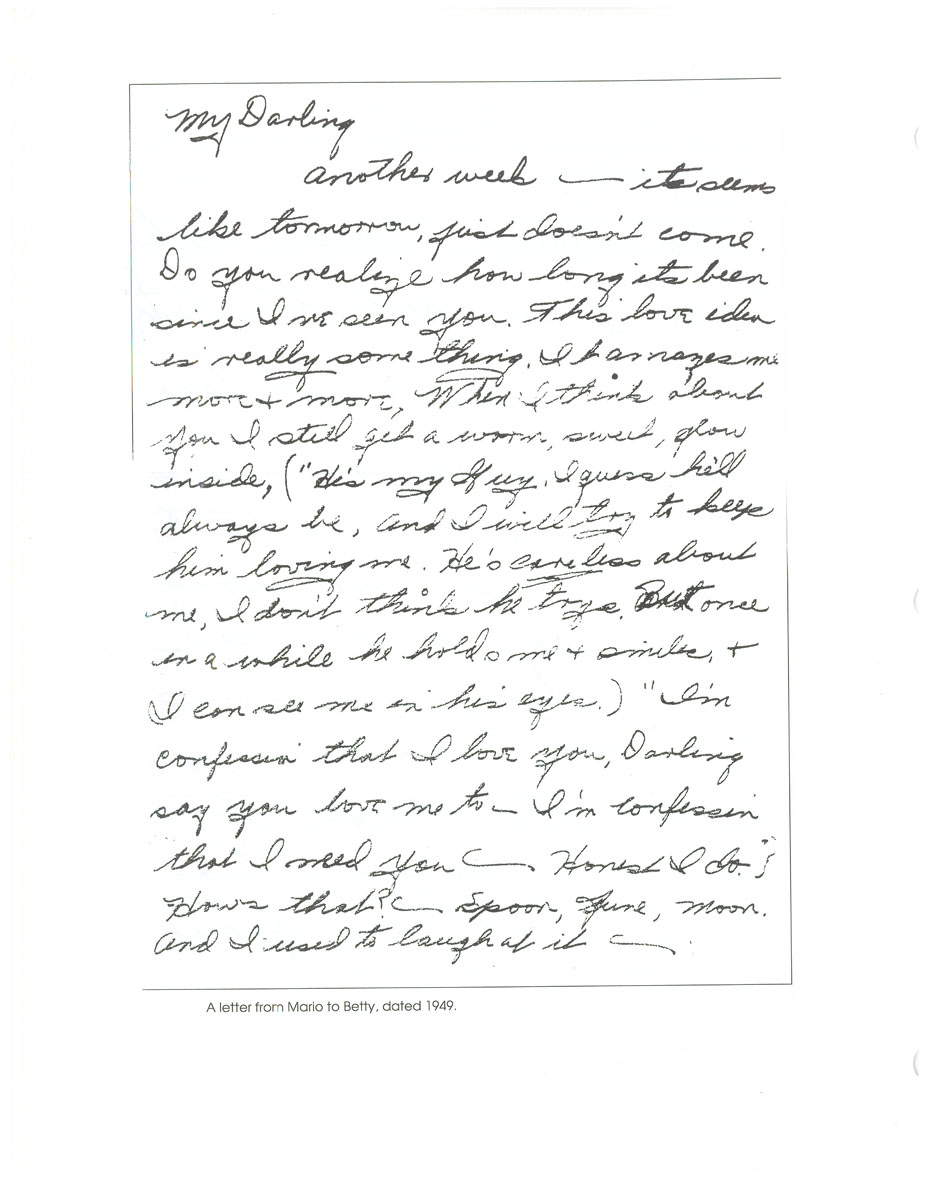 My Darling
another week — its seems
like tommorrow, just doesn't come.
Do you realize how long its been
since I've seen you. This love idea
is really some thing. It amazes me
more + more, When I think about
you I still get a worm, sweet, glow
inside, ("He's my Guy. I guess he'll
always be, and I will try to keep
him loving me. He's careless about
me, I don't think he trys. But once
in a while he holds me + smiles, +
I can see me in his eyes.) " I'm
confessin that I love you, Darling
say you love me to — I'm confessin
that I need you — Honest I do."
How's that? — Spoon, June, Moon.
And I used to laugh at it —
A letter from Mario to Betty, dated 1949.